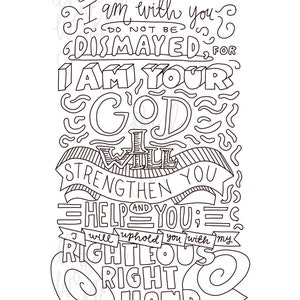 I am with you
DO NOT BE
DISMAYED, FOR
I AM YOUR
GOD
I
WILL
STRENGTHEN YOU
HELP AND YOU;
I will uphold you with my
RIGHTEOUS
RIGHT
HAND